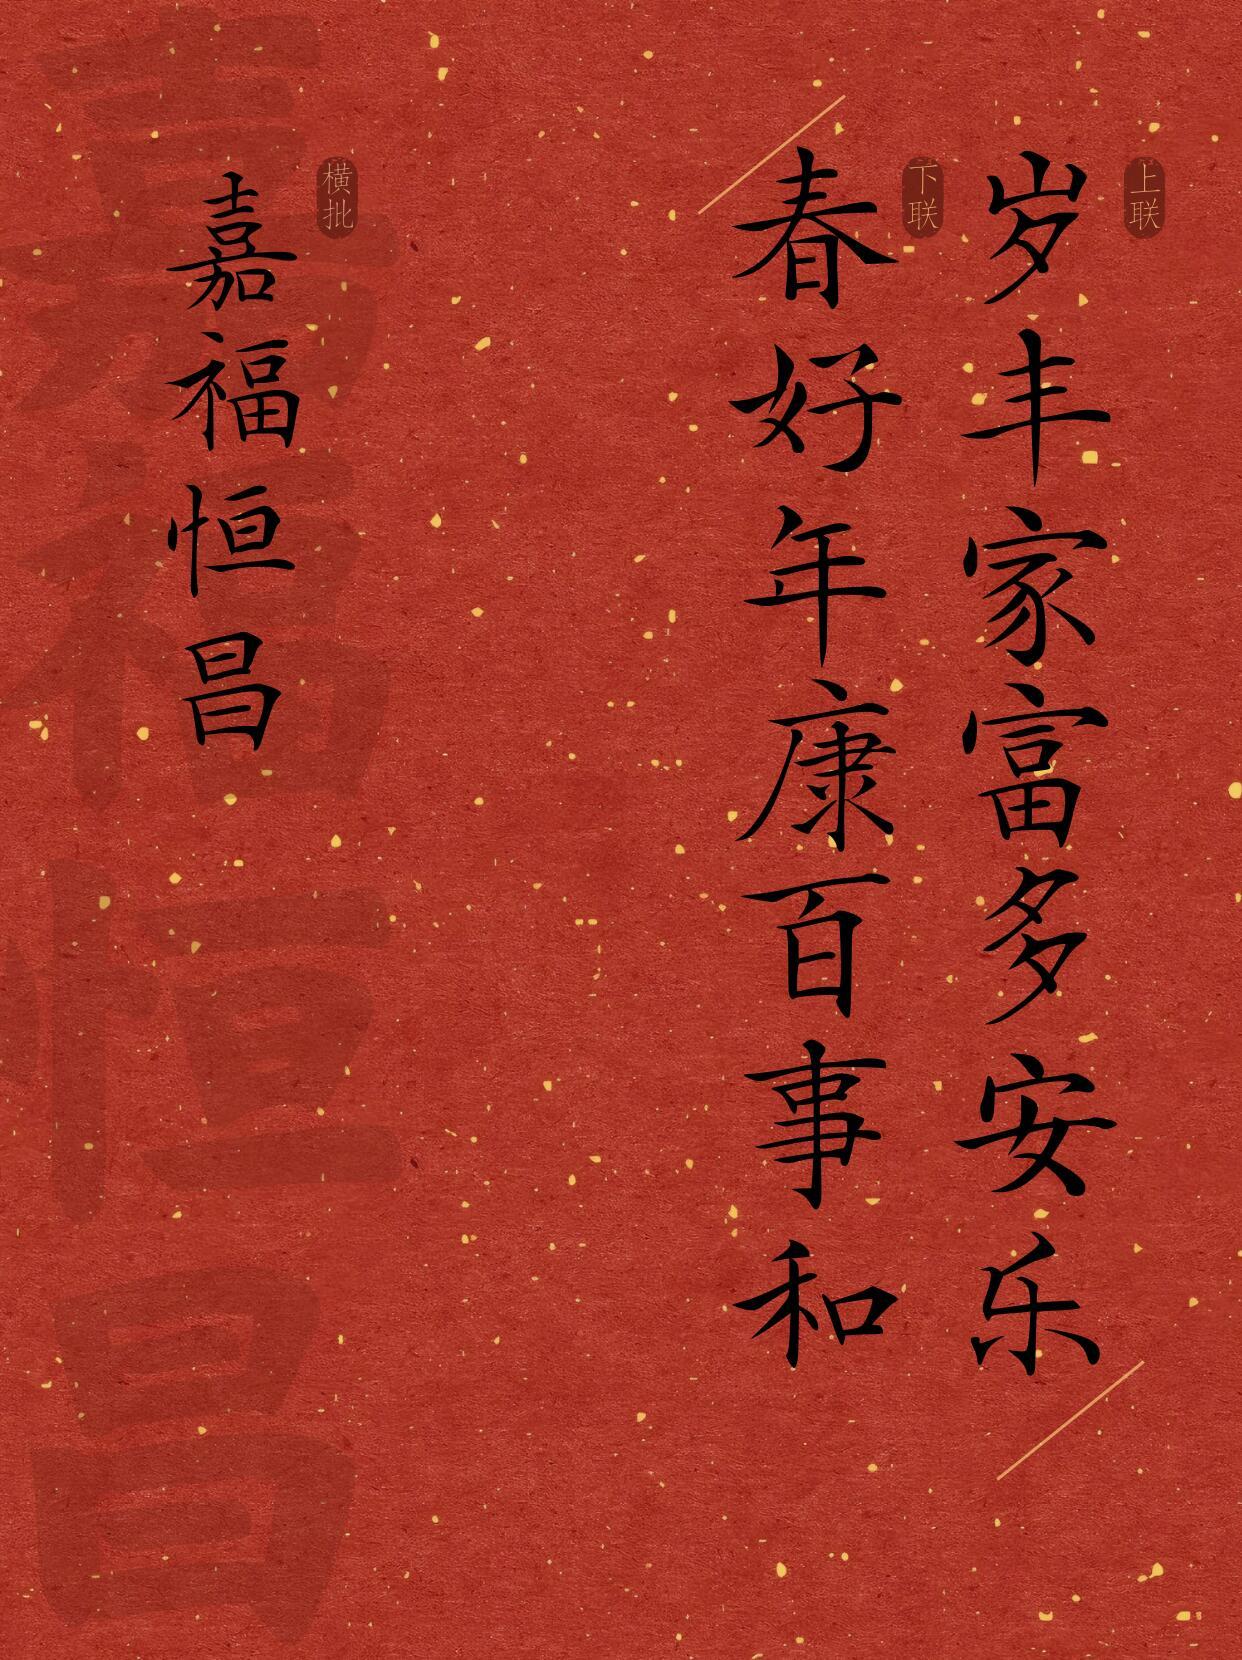 上联
岁丰家富多安乐
下联
春好年康百事和
横批
嘉福恒昌
嘉福恒昌